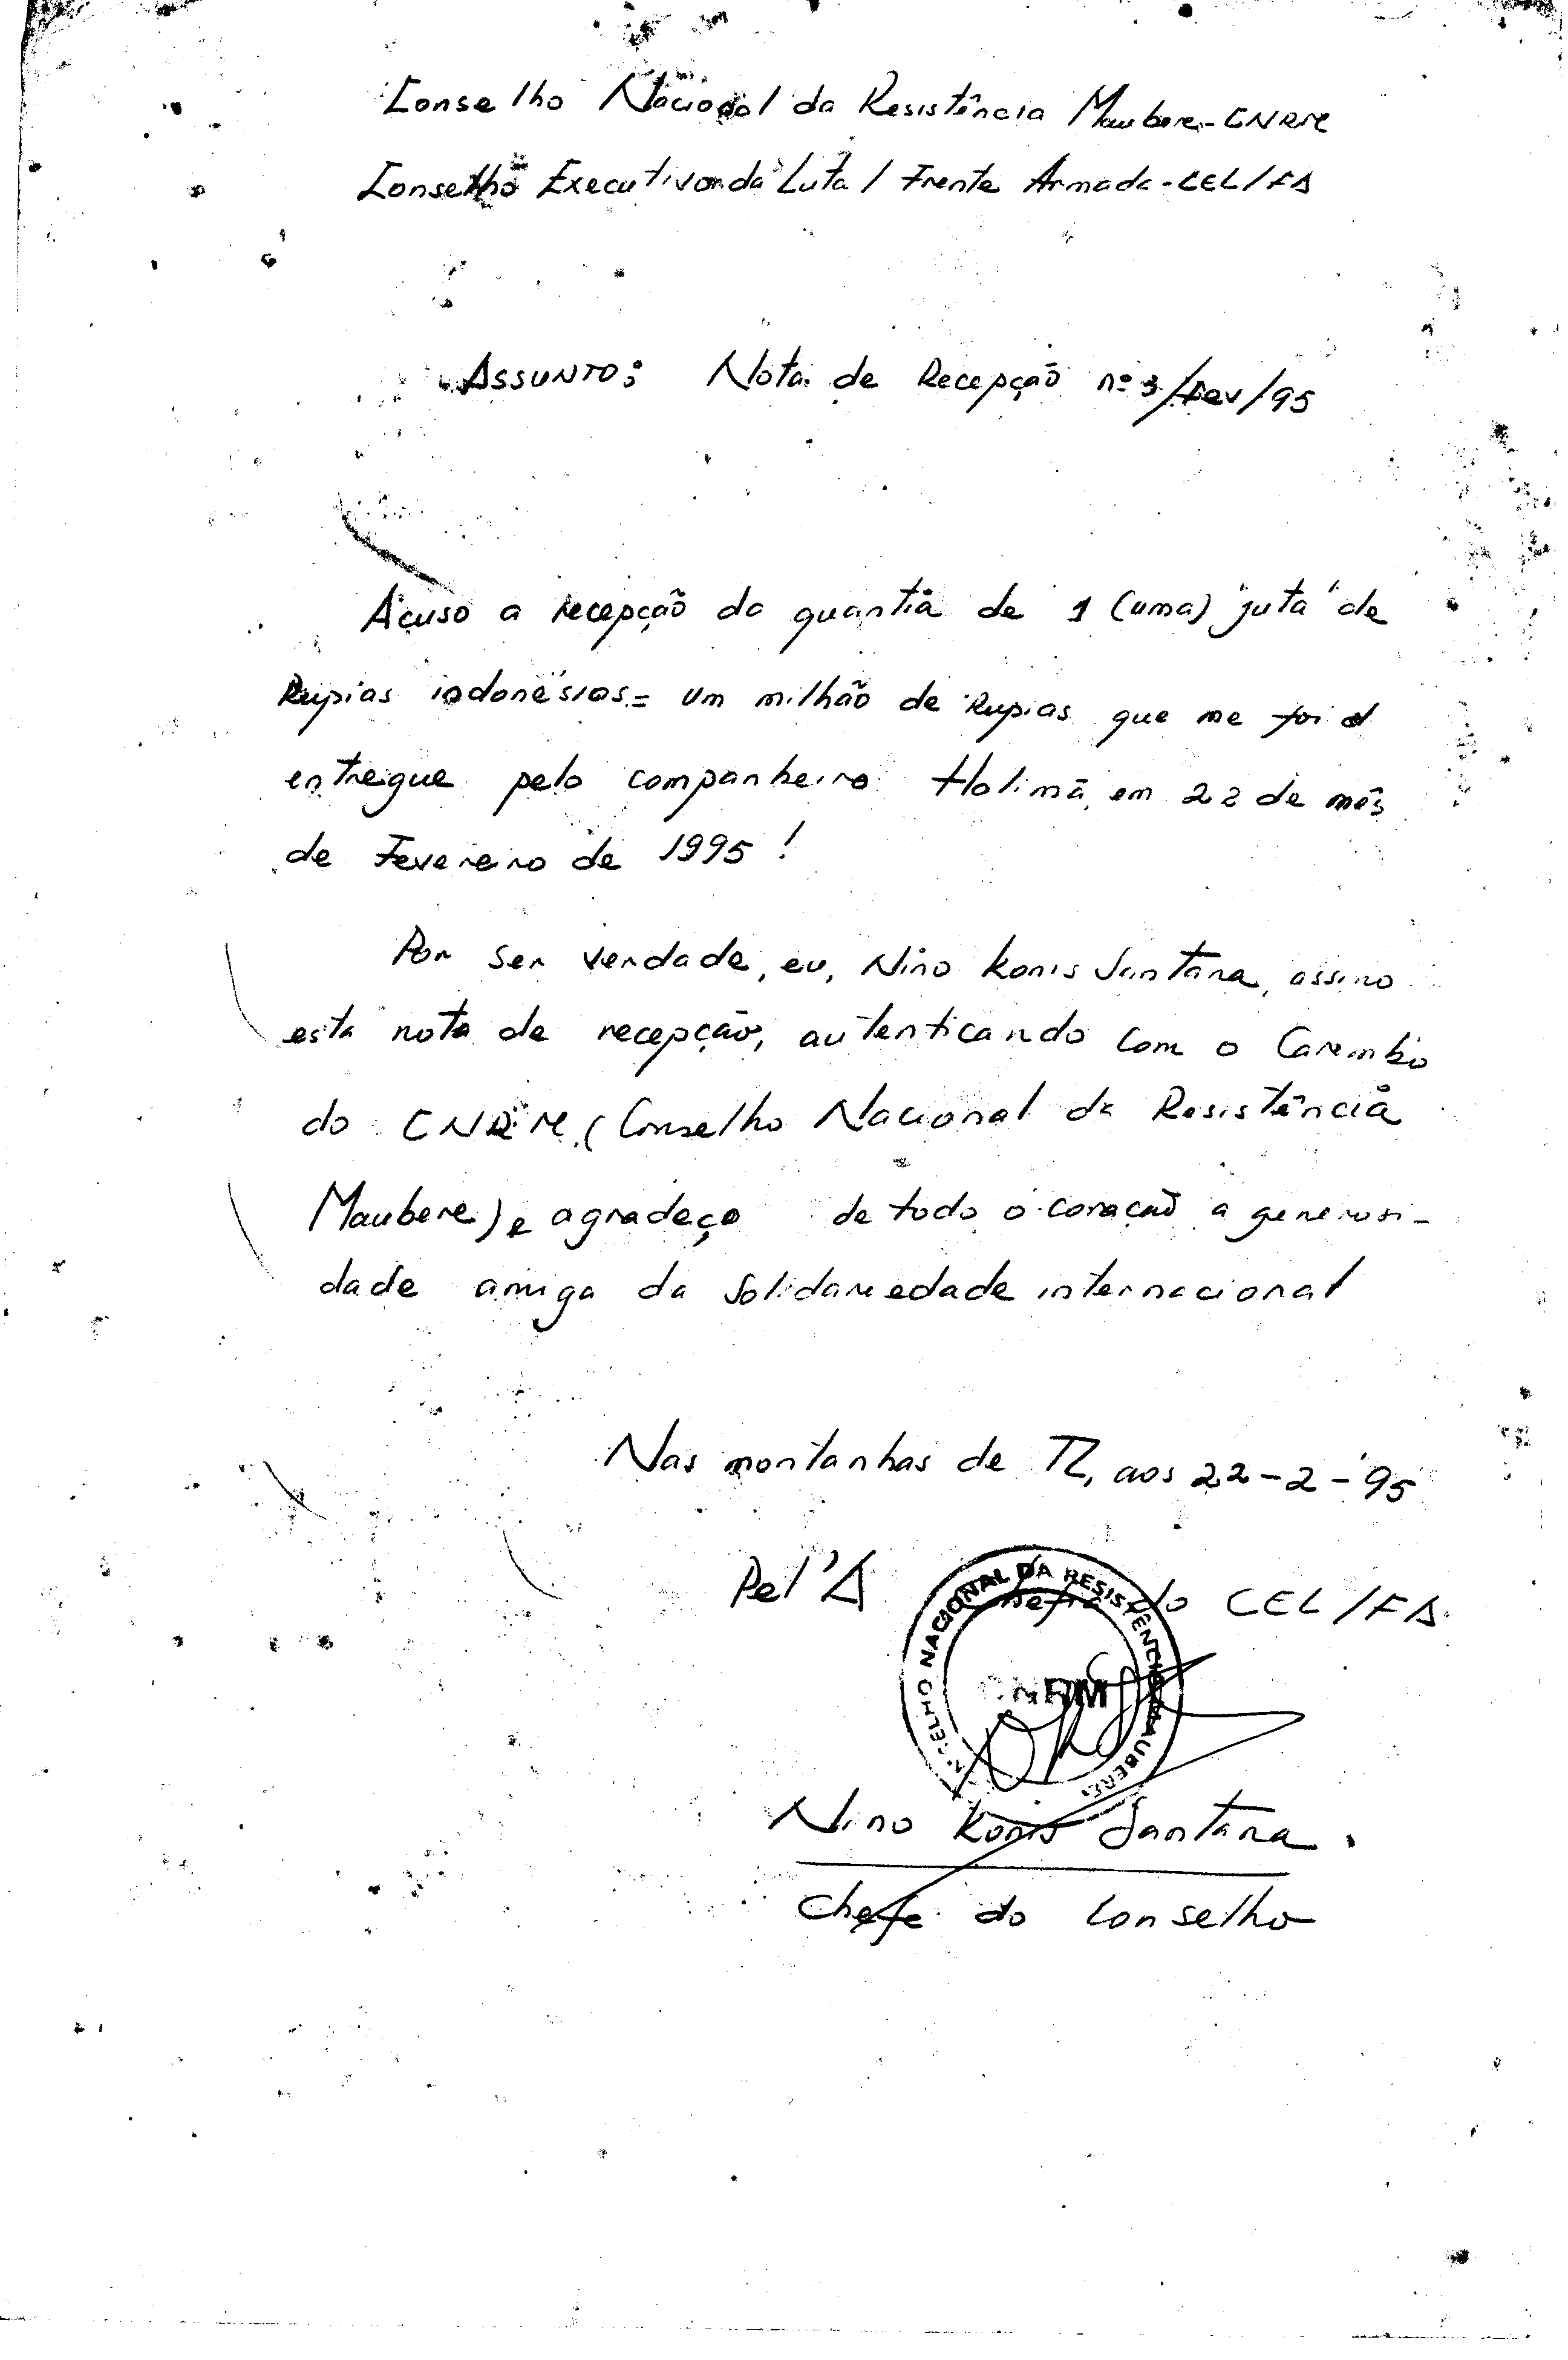 Conselho Nacional da Resistência Maubere-CNRM
Conselho Executivo da Luta / Frente Armada-CEL/FA
ASSUNTO: Nota de Recepção nº 3/Fev/95
Acuso a recepção da quantia de 1 (uma) "juta" de
Rupias indonésias = um milhão de Rupias que me foi
entregue pelo companheiro Holimã, em 22 de mês
de Fevereiro de 1995!
Por ser verdade, eu, Nino Konis Santana, assino
esta nota de recepção, autenticando com o Carimbo
do CNRM (Conselho Nacional da Resistência
Maubere) e agradeço de todo o coração a generosi-
dade amiga da Solidariedade internacional
Nas montanhas de TL, aos 22-2-'95
Pel'A Chefia do CEL/FA
NACIONAL DA RESISTÊNCIA MAUBERE
CNRM
Nino Konis Santana.
Chefe do Conselho